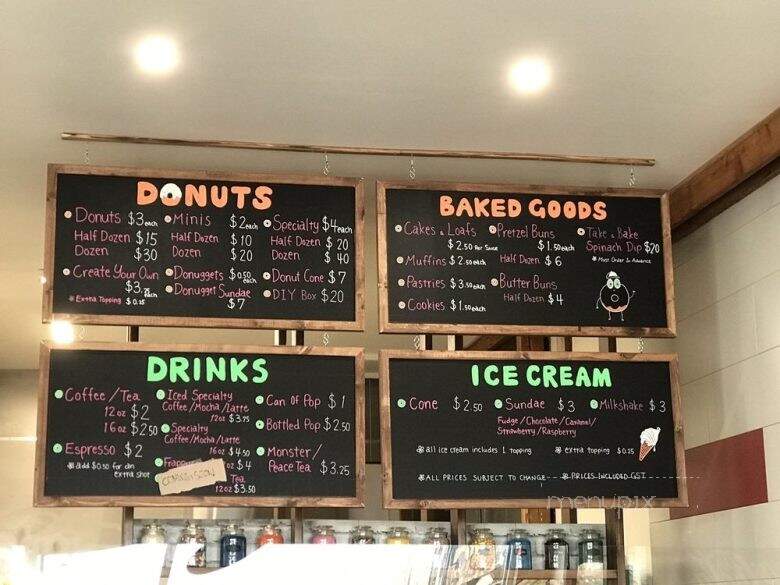 DONUTS
Donuts $3 each
Half Dozen $15
Dozen $30
Create Your Own
$3.75 each
* Extra Topping $0.25
Minis $2 each
Half Dozen $10
Dozen $20
Donuggets $0.50 each
Donuggit Sundae
$7
Specialty $4 each
Half Dozen $20
Dozen $40
Donut Cone $7
DIY Box $20
BAKED GOODS
Cakes & Loafs
$2.50 Per Slice
Muffins $2.50 each
Pastries $3.50 each
Cookies $1.50 each
Pretzel Buns
$1.50 each
Half Dozen $6
Butter Buns
Half Dozen $4
Take & Bake
Spinach Dip $20
* Must Order In Advance
DRINKS
Coffee / Tea
12 oz $2
16 oz $2.50
Espresso $2
* add $0.50 for an
extra shot
Iced Specialty
Coffee/Mocha/Latte
12oz $3.75
Specialty
Coffee/Mocha/Latte
16oz $4.50
Frappu
oz $4
COMING SOON
Tea
12oz $3.50
Can Of Pop $1
Bottled Pop $2.50
Monster /
Peace Tea $3.25
ICE CREAM
Cone $2.50
Sundae $3
Fudge / Chocolate / Caramel /
Strawberry / Raspberry
Milkshake $3
* all ice cream includes 1 topping
* extra topping $0.25
* ALL PRICES SUBJECT TO CHANGE
* PRICES INCLUDED GST
menupix